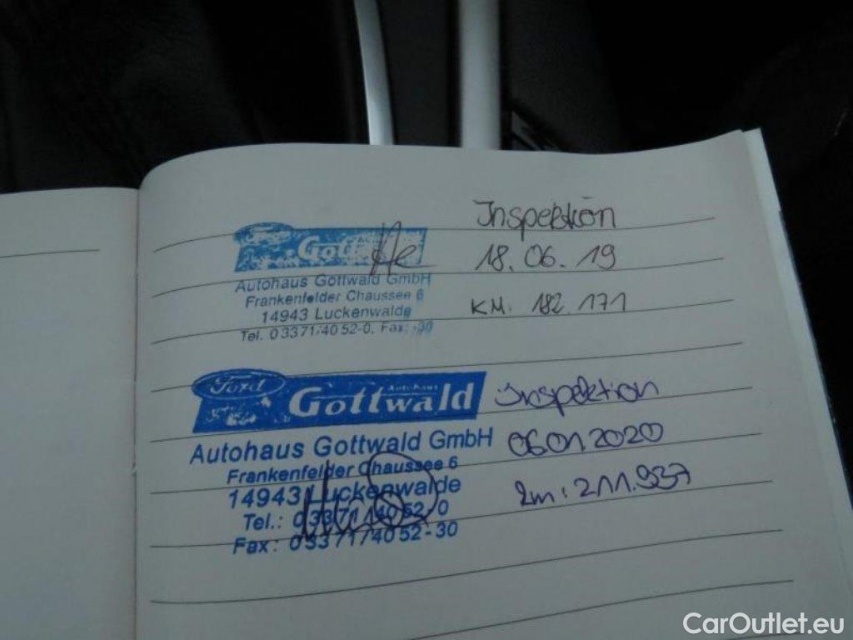 Gott
Inspektion
18.06.19
KM: 182.171
Autohaus Gottwald GmbH
Frankenfelder Chaussee 6
14943 Luckenwalde
Tel. 03371/4052-0, Fax: -30
Ford
Autohaus
Gottwald
Inspektion
06.01.2020
km: 211.937
Autohaus Gottwald GmbH
Frankenfelder Chaussee 6
14943 Luckenwalde
Tel.: 03371/4052-0
Fax: 03371/4052-30
CarOutlet.eu